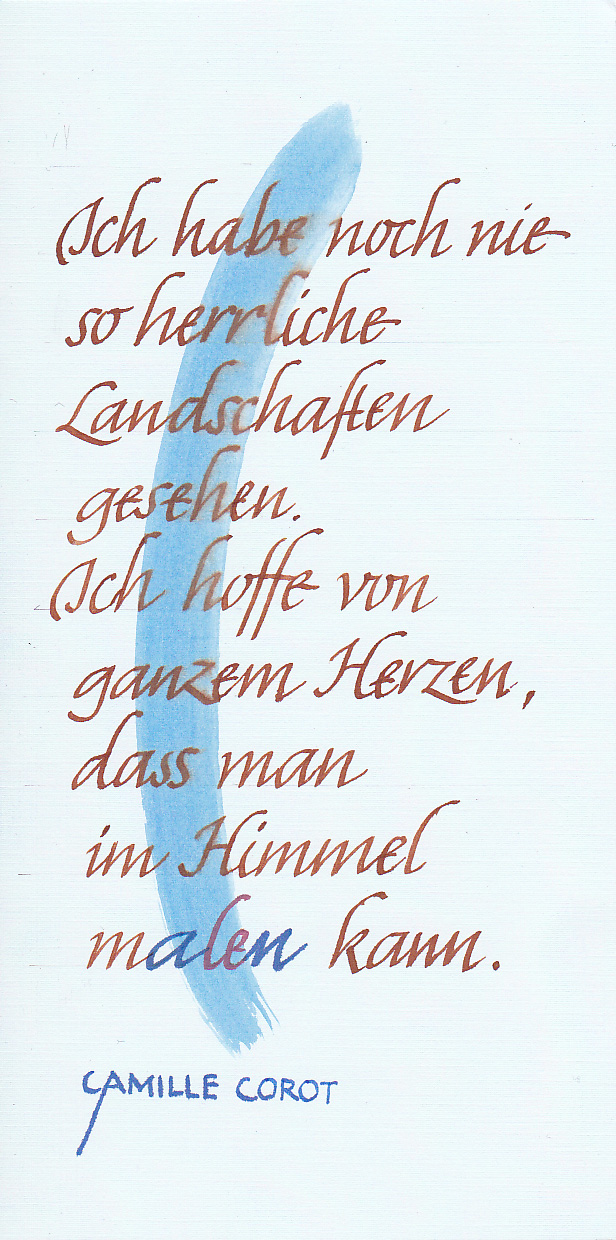 Ich habe noch nie
so herrliche
Landschaften
gesehen.
Ich hoffe von
ganzem Herzen,
dass man
im Himmel
malen kann.
CAMILLE COROT